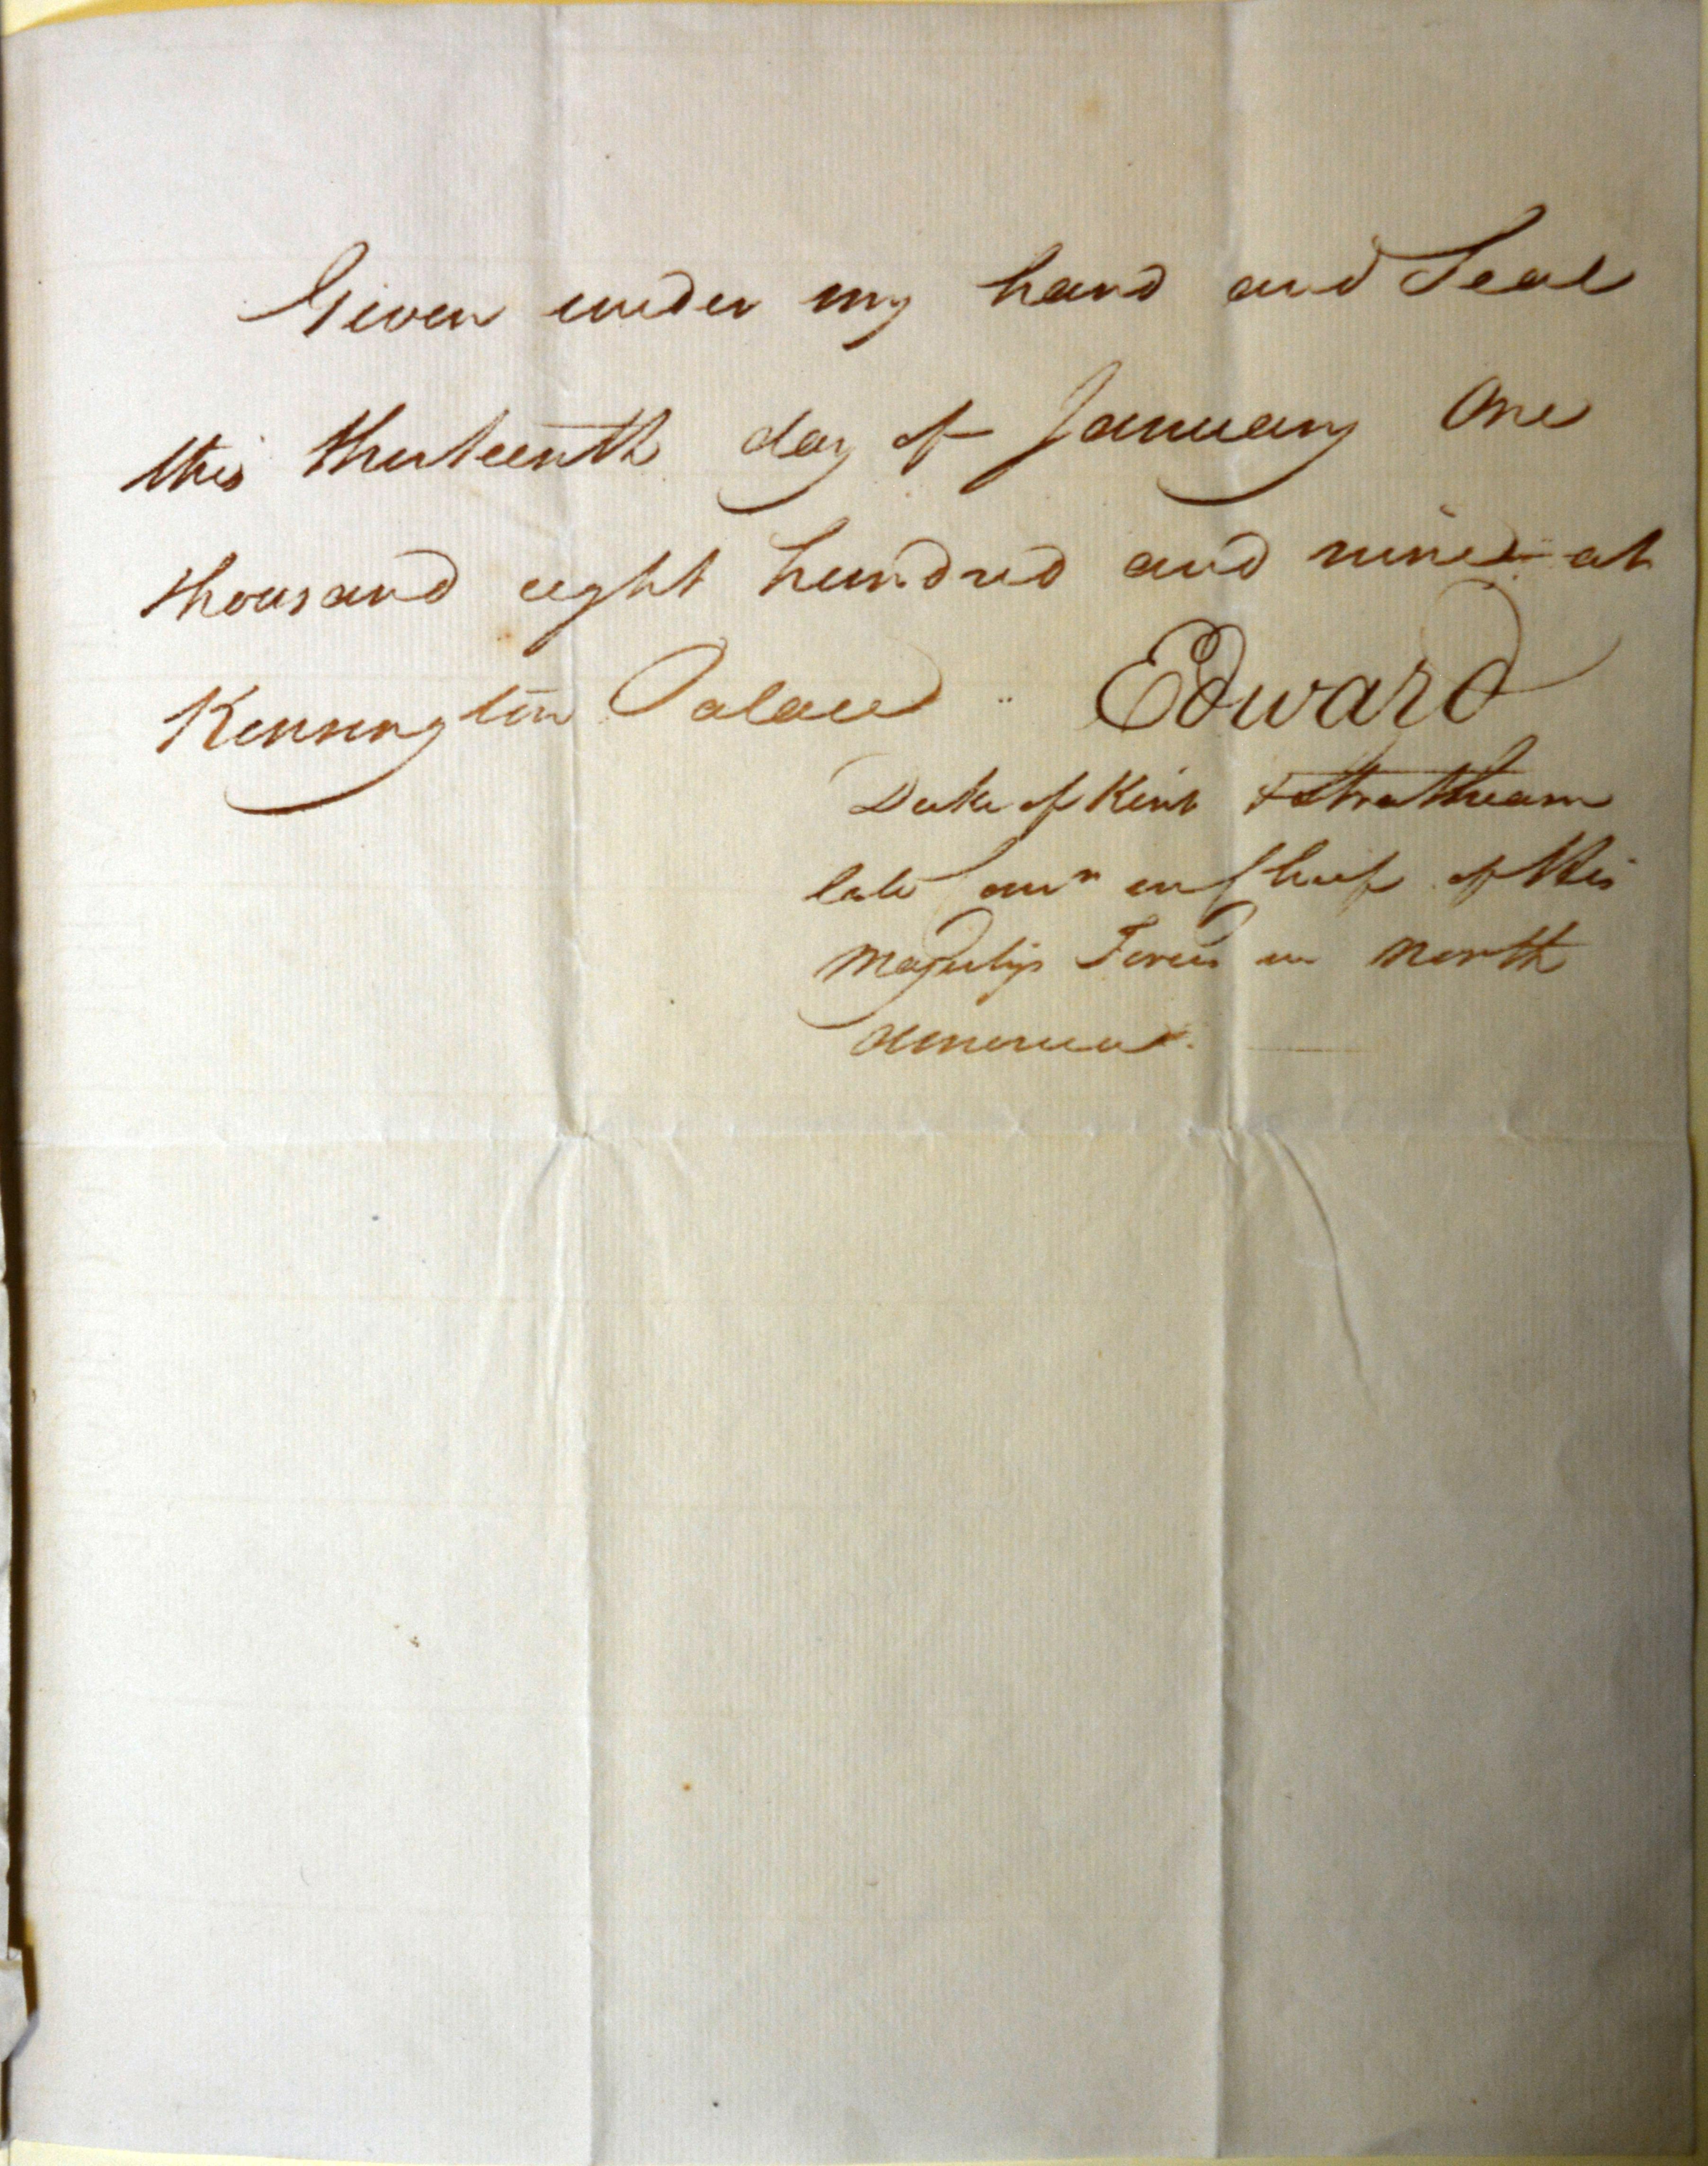 Given under my hand and Seal
this thirteenth day of January One
thousand eight hundred and nine at
Kensington Palace Edward
Duke of Kent & Strathearn
late Comr in Chief of His
Majesty's Forces in North
America.